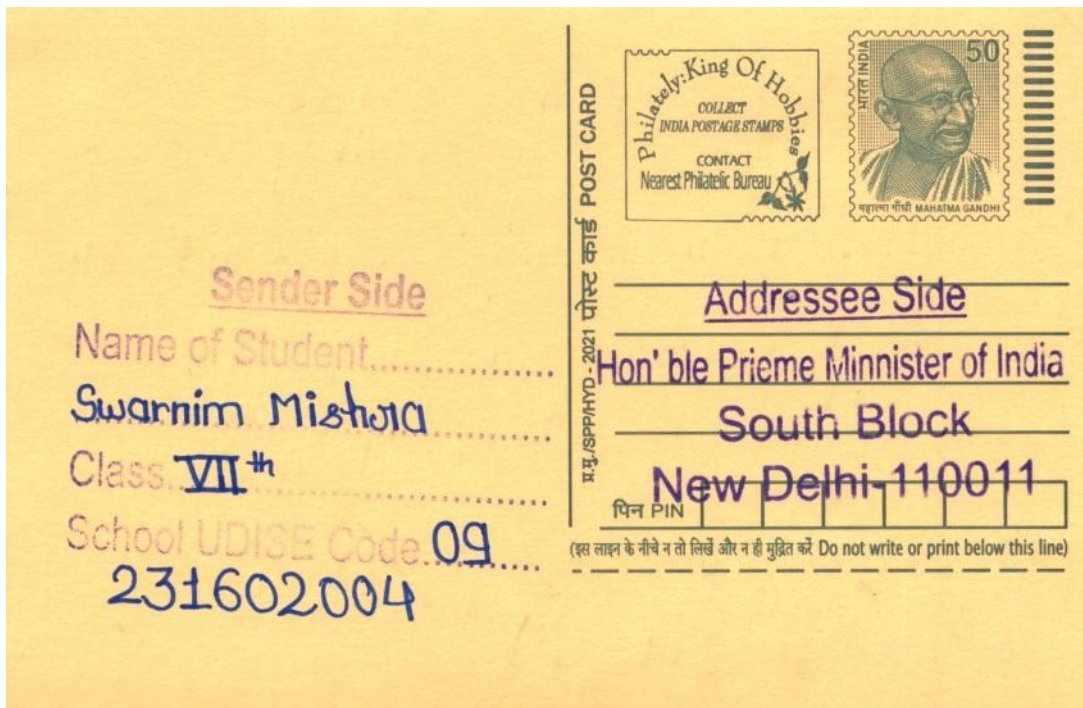 Sender Side
Name of Student..................
Swarnim Mishra
Class. VIIth
School UDISE Code. 09
231602004
प्र.मु./SPP/HYD - 2021 पोस्ट कार्ड POST CARD
Philately: King Of Hobbies
COLLECT
INDIA POSTAGE STAMPS
CONTACT
Nearest Philatelic Bureau
50
भारत INDIA
महात्मा गाँधी MAHATMA GANDHI
Addressee Side
Hon' ble Prieme Minnister of India
South Block
New Delhi-110011
पिन PIN
(इस लाइन के नीचे न तो लिखें और न ही मुद्रित करें Do not write or print below this line)